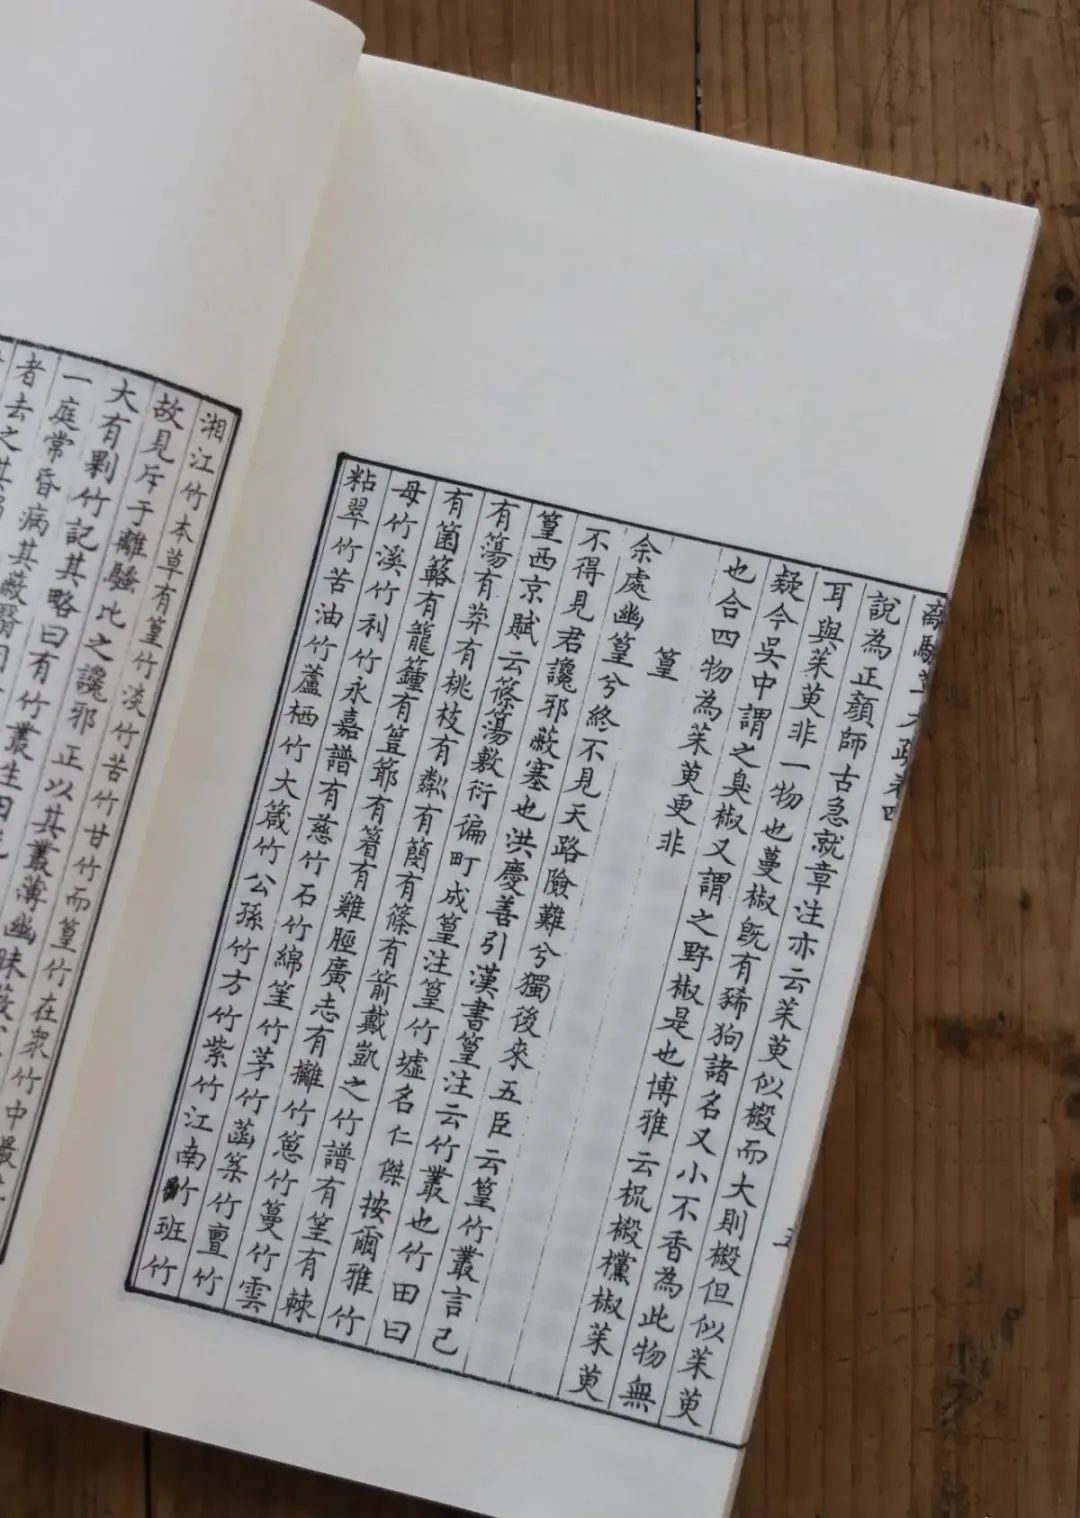 離騷草木疏卷四
五
說為正顏師古急就章注亦云茱萸似樧而大則樧但似茱萸
耳與茱萸非一物也蔓椒既有豨狗諸名又小不香為此物無
疑今吳中謂之臭椒又謂之野椒是也博雅云樧欓椒茱萸
也合四物為茱萸更非
篁
余處幽篁兮終不見天路險難兮獨後來五臣云篁竹叢言己
不得見君讒邪蔽塞也洪慶善引漢書篁注云竹叢也竹田曰
篁西京賦云篠簜敷衍徧町成篁注篁竹墟名仁傑按爾雅竹
有簜有莽有桃枝有粼有簡有篠有箭戴凱之竹譜有篁有棘
有箘簬有籠籦有有有雞脛廣志有竹箆竹竹雲
母竹溪竹利竹永嘉譜有慈竹石竹綿竹茅竹菡竹亶竹
粘翠竹苦油竹蘆栖竹大箴竹公孫竹方竹紫竹江南竹班竹
湘江竹本草有篁竹淡竹苦竹甘竹而篁竹在眾竹中最
故見斥于離騷比之讒邪正以其叢薄幽昧蔽
大有剥竹記其略曰有竹叢生
一庭常昏病其蔽翳
者去之其